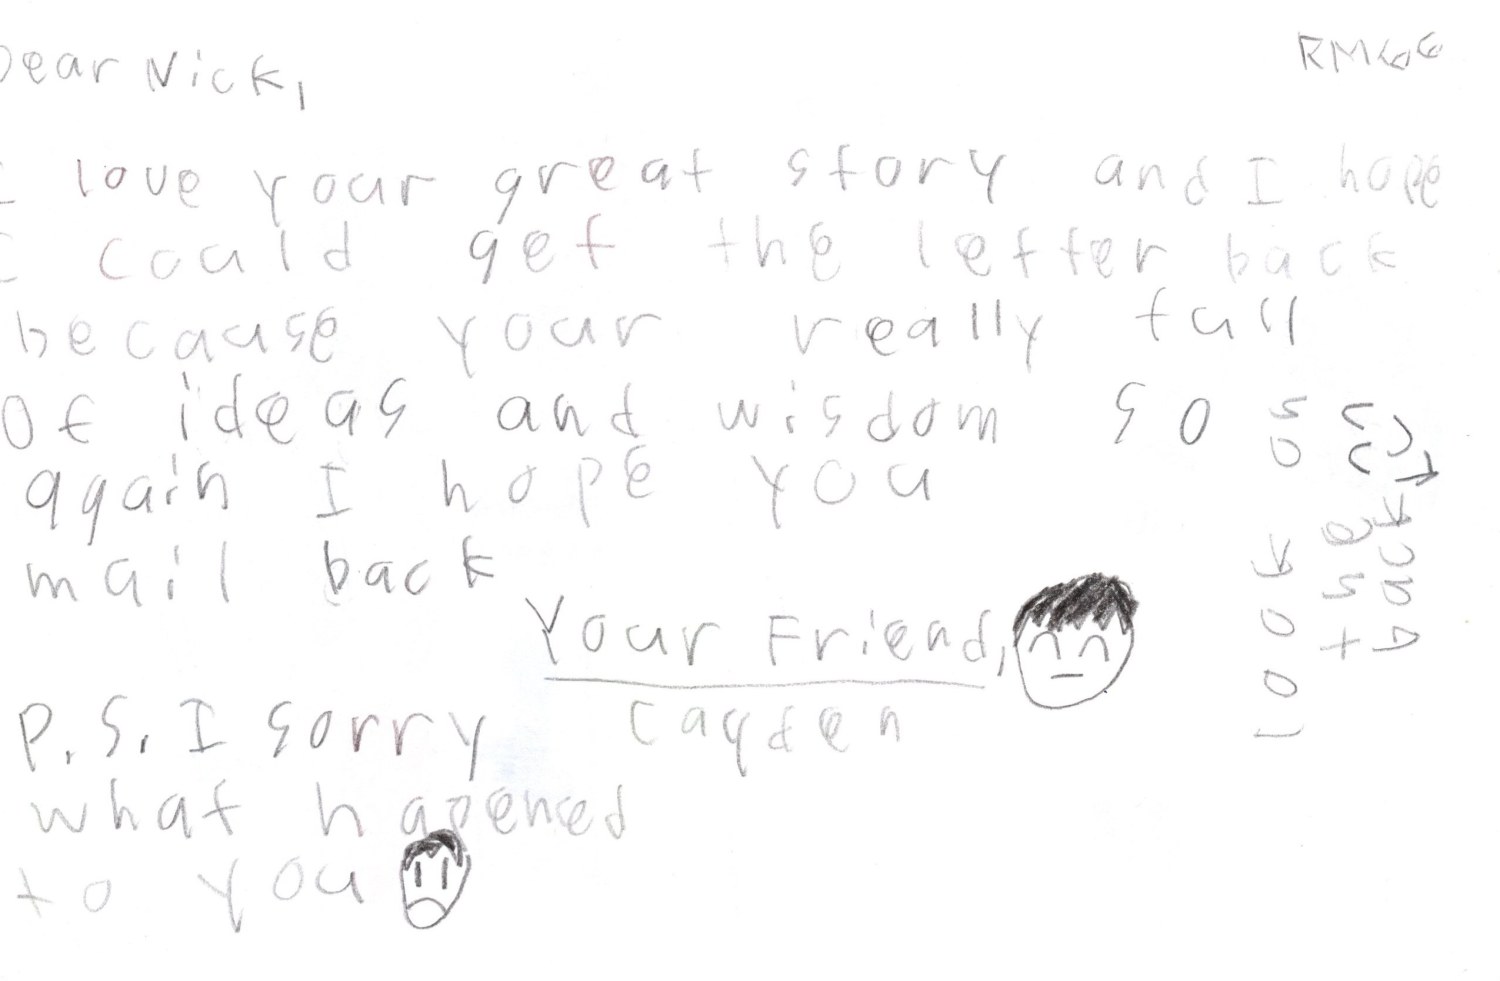 RM66
Dear Nick,
I love your great story and I hope
I could get the letter back
because your really full
of ideas and wisdom so
again I hope you
mail back
Your Friend,
Cayden
P.S. I sorry
what hapened
to you
look on
the
back